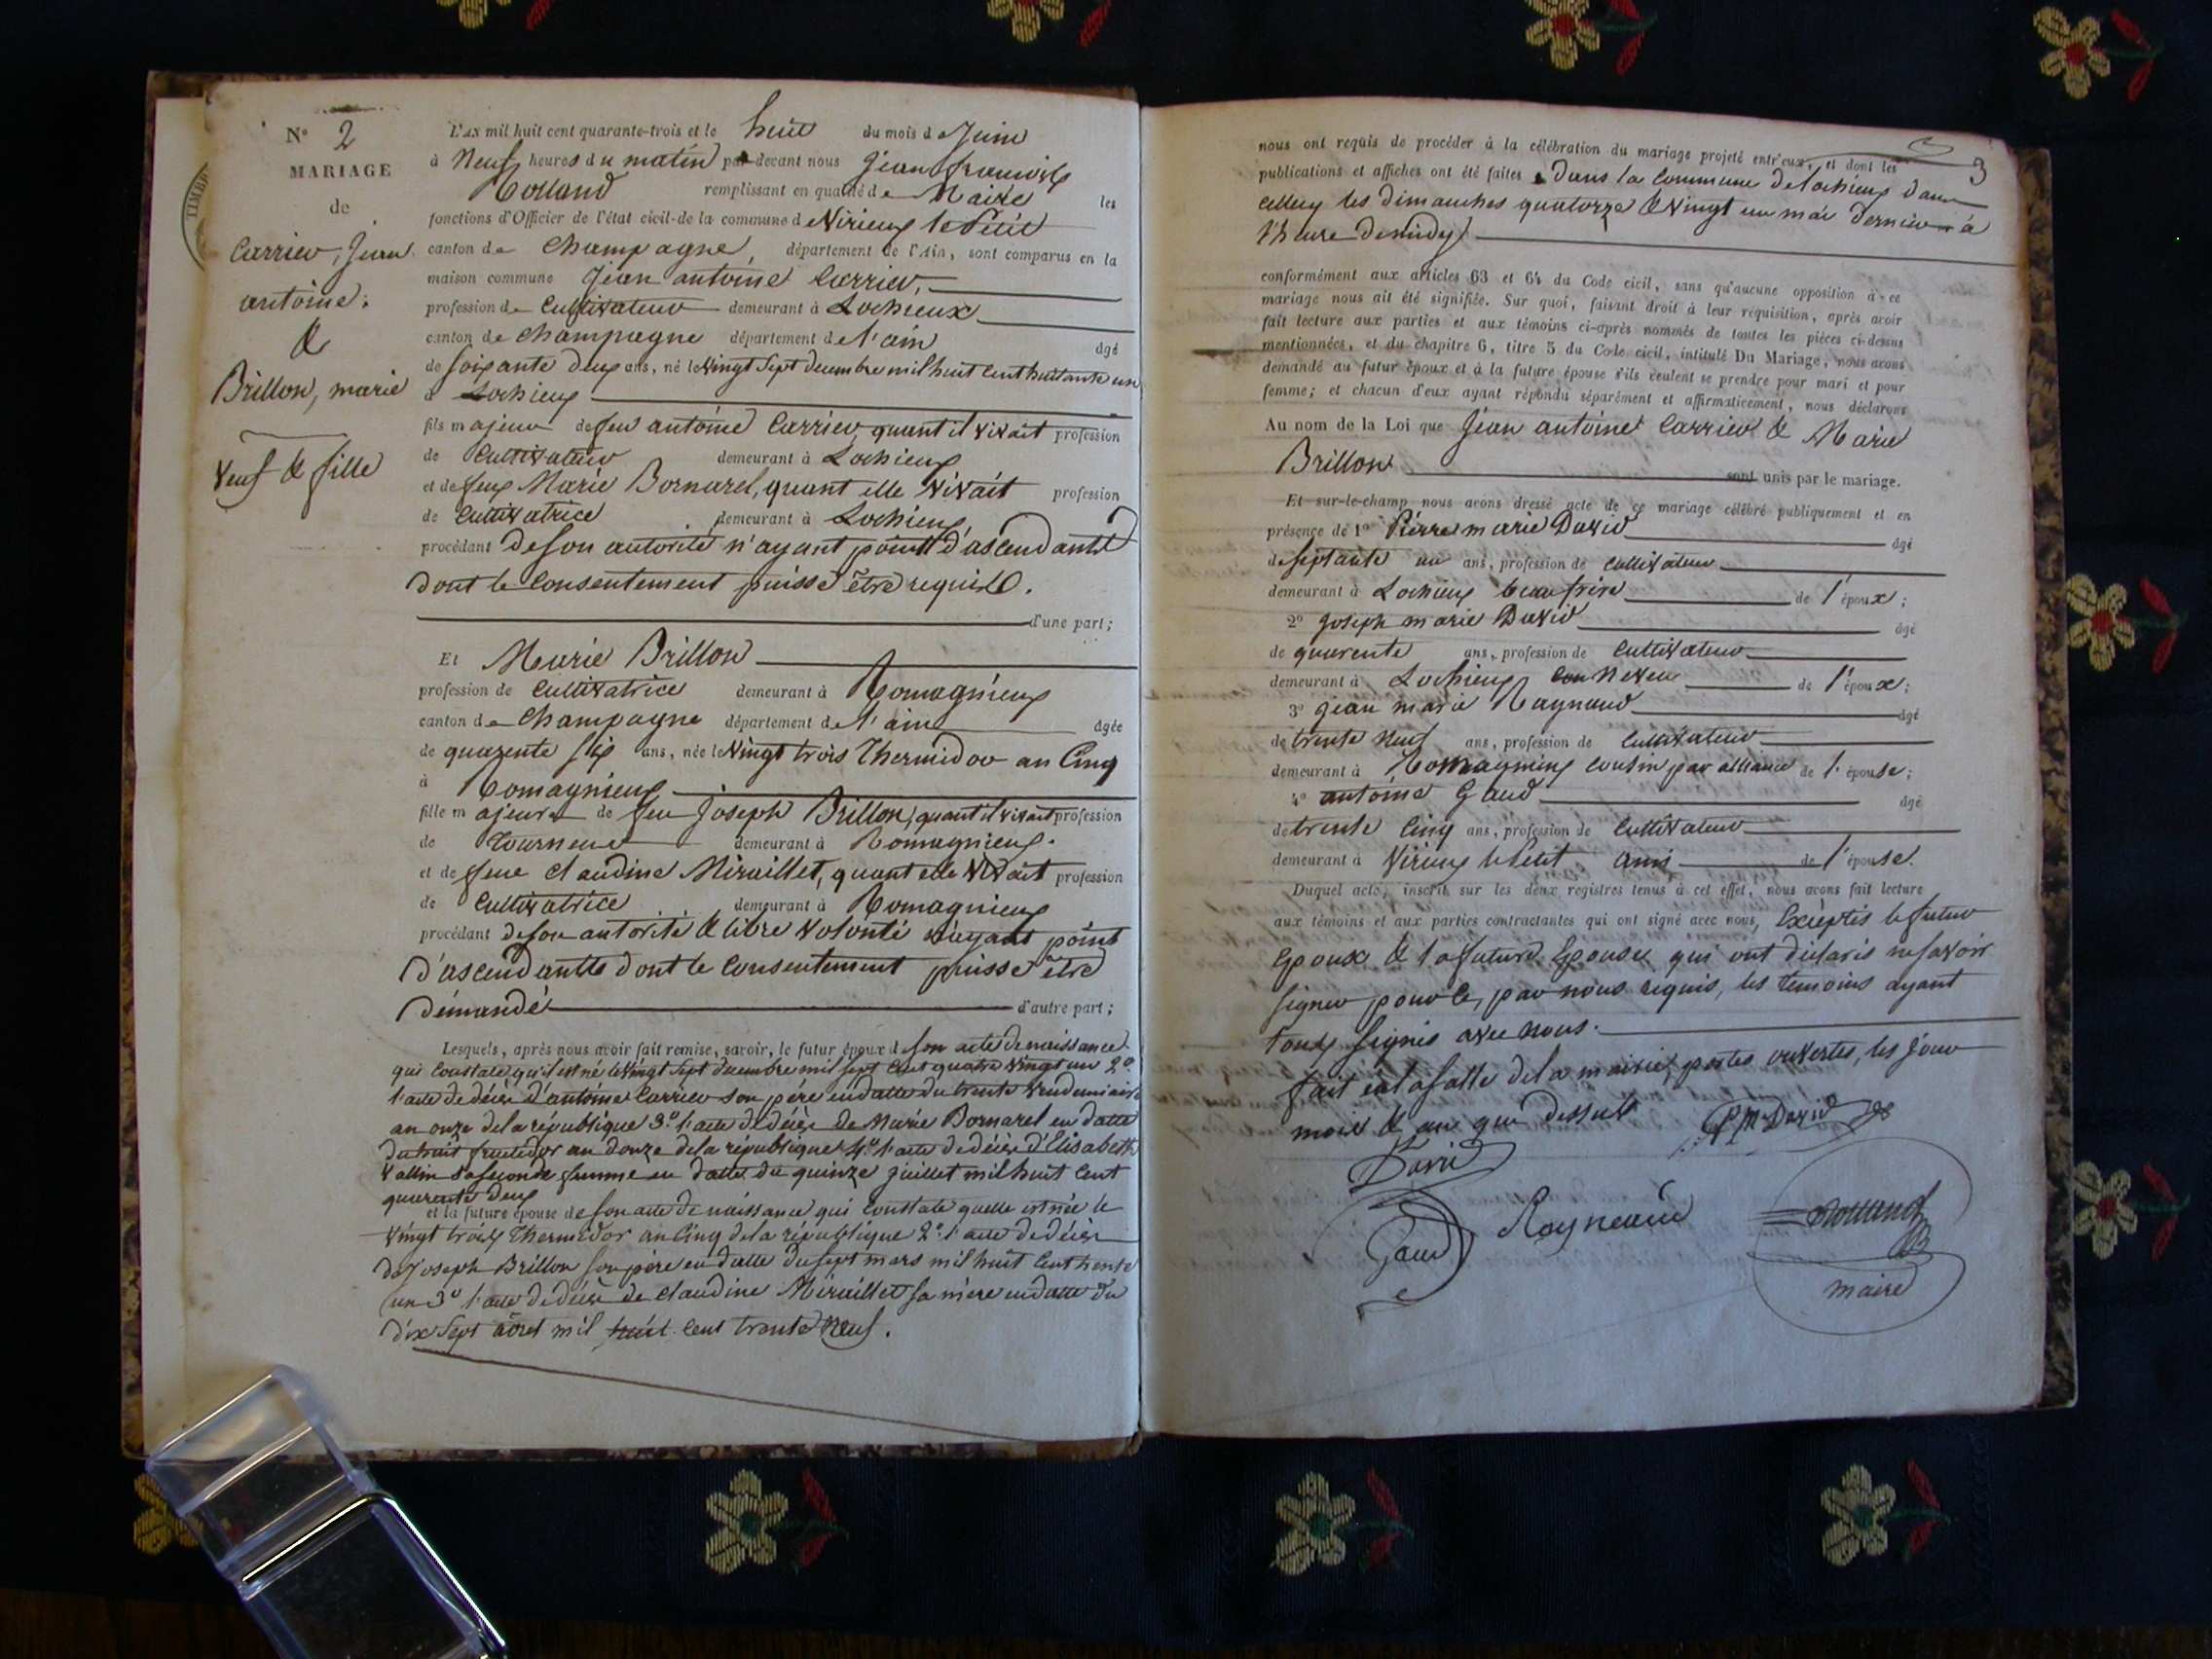 TIMBR
N° 2
MARIAGE
de
Carrier, Jean
antoine.
&
Brillon, marie
Veuf & fille
L'AN mil huit cent quarante-trois et le huit du mois de Juin
à Neuf heures du matin par-devant nous Jean françois
Rolland remplissant en qualité de Maire les
fonctions d'Officier de l'état civil de la commune de Virieux le Petit
canton de Champagne, département de l'Ain, sont comparus en la
maison commune Jean antoine Carrier,
profession de Cultivateur demeurant à Lochieux
canton de Champagne département de l'ain âgé
de soixante deux ans, né le Vingt Sept decembre mil huit Cent huittante un
à Lochieux
fils majeur de feu antoine Carrier, quant il vivait profession
de Cultivateur demeurant à Lochieux
et de feux Marie Bornarel, quant elle Vivait profession
de Cultivatrice demeurant à Lochieux,
procédant de son autorité n'ayant point d'ascendants
dont le Consentement puisse être requis.
d'une part;
Et Marie Brillon
profession de Cultivatrice demeurant à Romagnieux
canton de Champagne département de l'ain âgée
de quarente six ans, née le Vingt trois Thermidor an Cinq
à Romagnieux
fille majeure de feu Joseph Brillon, quant il vivait profession
de Tourneur demeurant à Romagnieux.
et de feue Claudine Miraillet, quant elle Vivait profession
de Cultivatrice demeurant à Romagnieux
procédant de son autorité & libre Volonté n'ayant point
d'ascendants dont le Consentement puisse être
démandé d'autre part;
Lesquels, après nous avoir fait remise, savoir, le futur époux de son acte de naissance
qui Constate qu'il est né le Vingt Sept decembre mil sept Cent quatre Vingt un 2°
l'acte de décès d'antoine Carrier son père en datte du trente Vendemiaire
an onze de la république 3° l'acte de décès de Marie Bornarel en datte
du huit fructidor an douze de la république 4° l'acte de décès d'Elisabeth
Vallin sa seconde femme en datte du quinze juillet mil huit Cent
quarente deux
et la future épouse de son acte de naissance qui Constate quelle est née le
Vingt trois Thermidor an Cinq de la république 2° l'acte de décès
de Joseph Brillon son père en datte du sept mars mil huit Cent trente
un 3° l'acte de décès de Claudine Miraillet sa mère en datte du
dix Sept avril mil huit Cent trente Neuf.
3
nous ont requis de procéder à la célébration du mariage projeté entr'eux, et dont les
publications et affiches ont été faites dans la Commune de Lochieux dans
celluy les dimanches quatorze & Vingt un mai dernier à
l'heure de midy
conformément aux articles 63 et 64 du Code civil, sans qu'aucune opposition à ce
mariage nous ait été signifiée. Sur quoi, faisant droit à leur réquisition, après avoir
fait lecture aux parties et aux témoins ci-après nommés de toutes les pièces ci-dessus
mentionnées, et du chapitre 6, titre 5 du Code civil, intitulé Du Mariage, nous avons
demandé au futur époux et à la future épouse s'ils veulent se prendre pour mari et pour
femme; et chacun d'eux ayant répondu séparément et affirmativement, nous déclarons
Au nom de la Loi que Jean antoine Carrier & Marie
Brillon sont unis par le mariage.
Et sur-le-champ nous avons dressé acte de ce mariage célébré publiquement et en
présence de 1° Pierre marie David âgé
de septante un ans, profession de Cultivateur
demeurant à Lochieux beau frère de l'époux;
2° Joseph marie David âgé
de quarente ans, profession de Cultivateur
demeurant à Lochieux Neveu de l'époux;
3° Jean marie Raynaud âgé
de trente Neuf ans, profession de Cultivateur
demeurant à Romagnieux Cousin par alliance de l'épouse;
4° antoine Gaud âgé
de trente Cinq ans, profession de Cultivateur
demeurant à Virieux le Petit ami de l'épouse.
Duquel acte, inscrit sur les deux registres tenus à cet effet, nous avons fait lecture
aux témoins et aux parties contractantes qui ont signé avec nous, Exceptés le futur
Epoux & la future Epouse qui ont déclarés ne savoir
signer pour Ce, par nous requis, les temoins ayant
tous signés avec nous.
fait en la salle de la mairie, portes ouvertes, les jour
mois & an que dessus PM David
David
Gaud Raynaud Rolland
maire